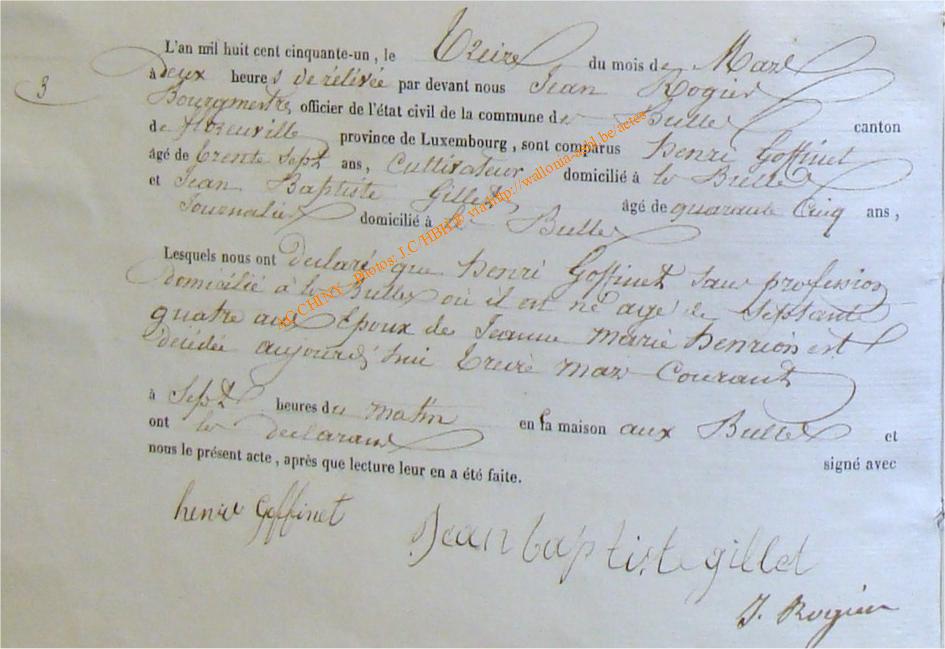 L'an mil huit cent cinquante-un, le treize du mois de Mars
3
à deux heures de rélévée par devant nous Jean Rogier
Bourgmestre officier de l'état civil de la commune de Bulles canton
de florenville province de Luxembourg, sont comparus henri Goffinet
âgé de trente sept ans, Cultivateur domicilié à les Bulles
et Jean Baptiste Gillet âgé de quarante Cinq ans,
Journalier domicilié à les Bulles
Lesquels nous ont declaré que henri Goffinet sans profession
domicilié à les Bulles où il est né agé de septante
quatre ans Epoux de Jeanne Marie henrion est
décédé aujourd'hui treize mars Courant
à Sept heures du matin en sa maison aux Bulles et
ont les declarans signé avec
nous le présent acte, après que lecture leur en a été faite.
henri Goffinet
Jean baptiste gillet
J. Rogier
AC CHINY_ Photos: J.C/HBH © via http://wallonia-asbl.be/actes